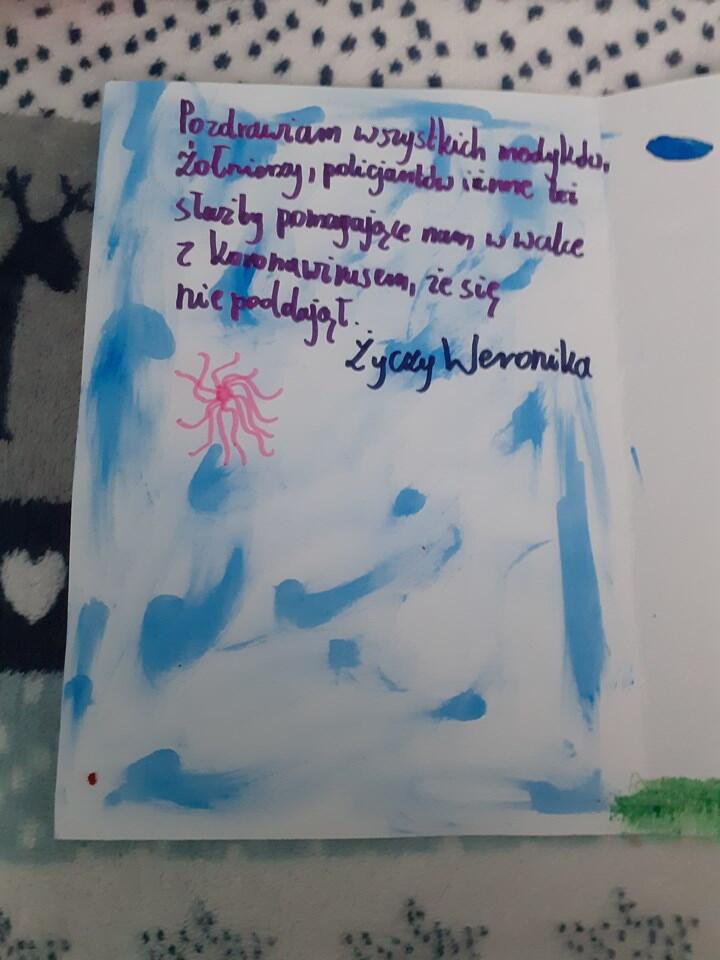 Pozdrawiam wszystkich medyków,
Żołnierzy, policjantów i inne też
służby pomagające nam w walce
z koronawirusem, że się
nie poddają.
Życzy Weronika